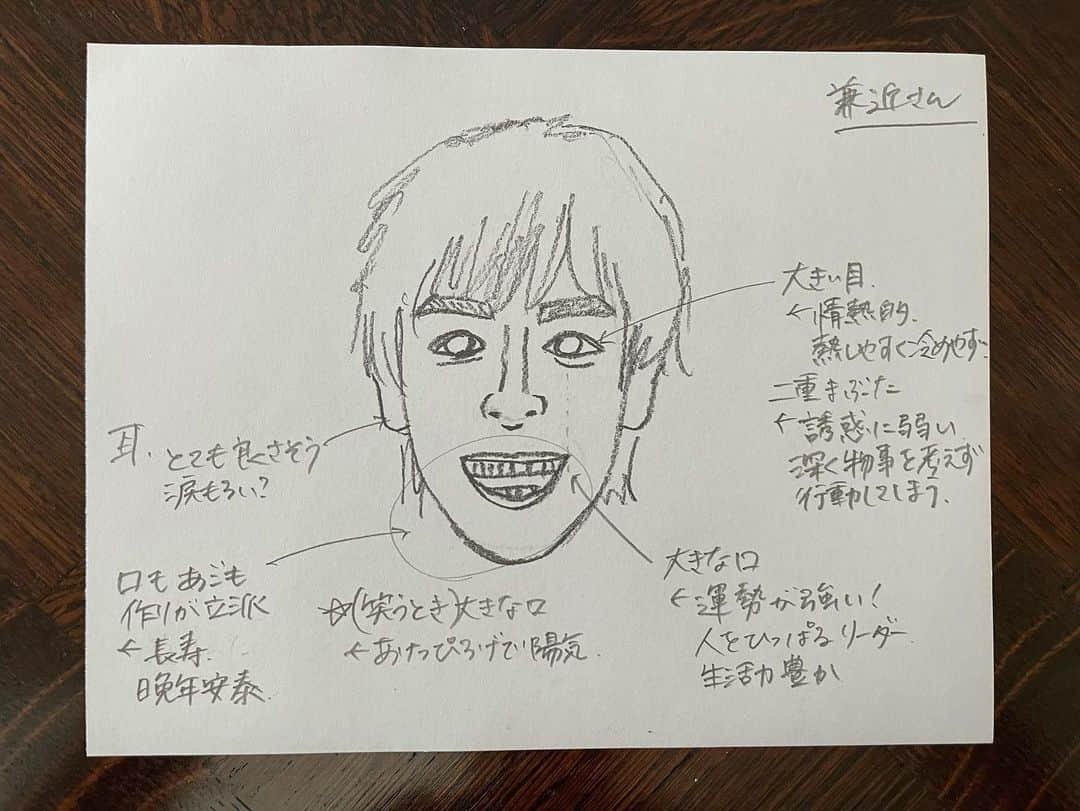 兼近さん
大きい目.
←情熱的.
熱しやすく冷めやす
二重まぶた
←誘惑に弱い
深く物事を考えず
行動してしまう.
耳. とても良さそう
涙もろい?
口もあごも
作りが立派
←長寿.
晩年安泰.
☆(笑うとき)大きな口
←あけっぴろげで陽気.
大きな口
←運勢が強い!
人をひっぱるリーダー.
生活力豊か